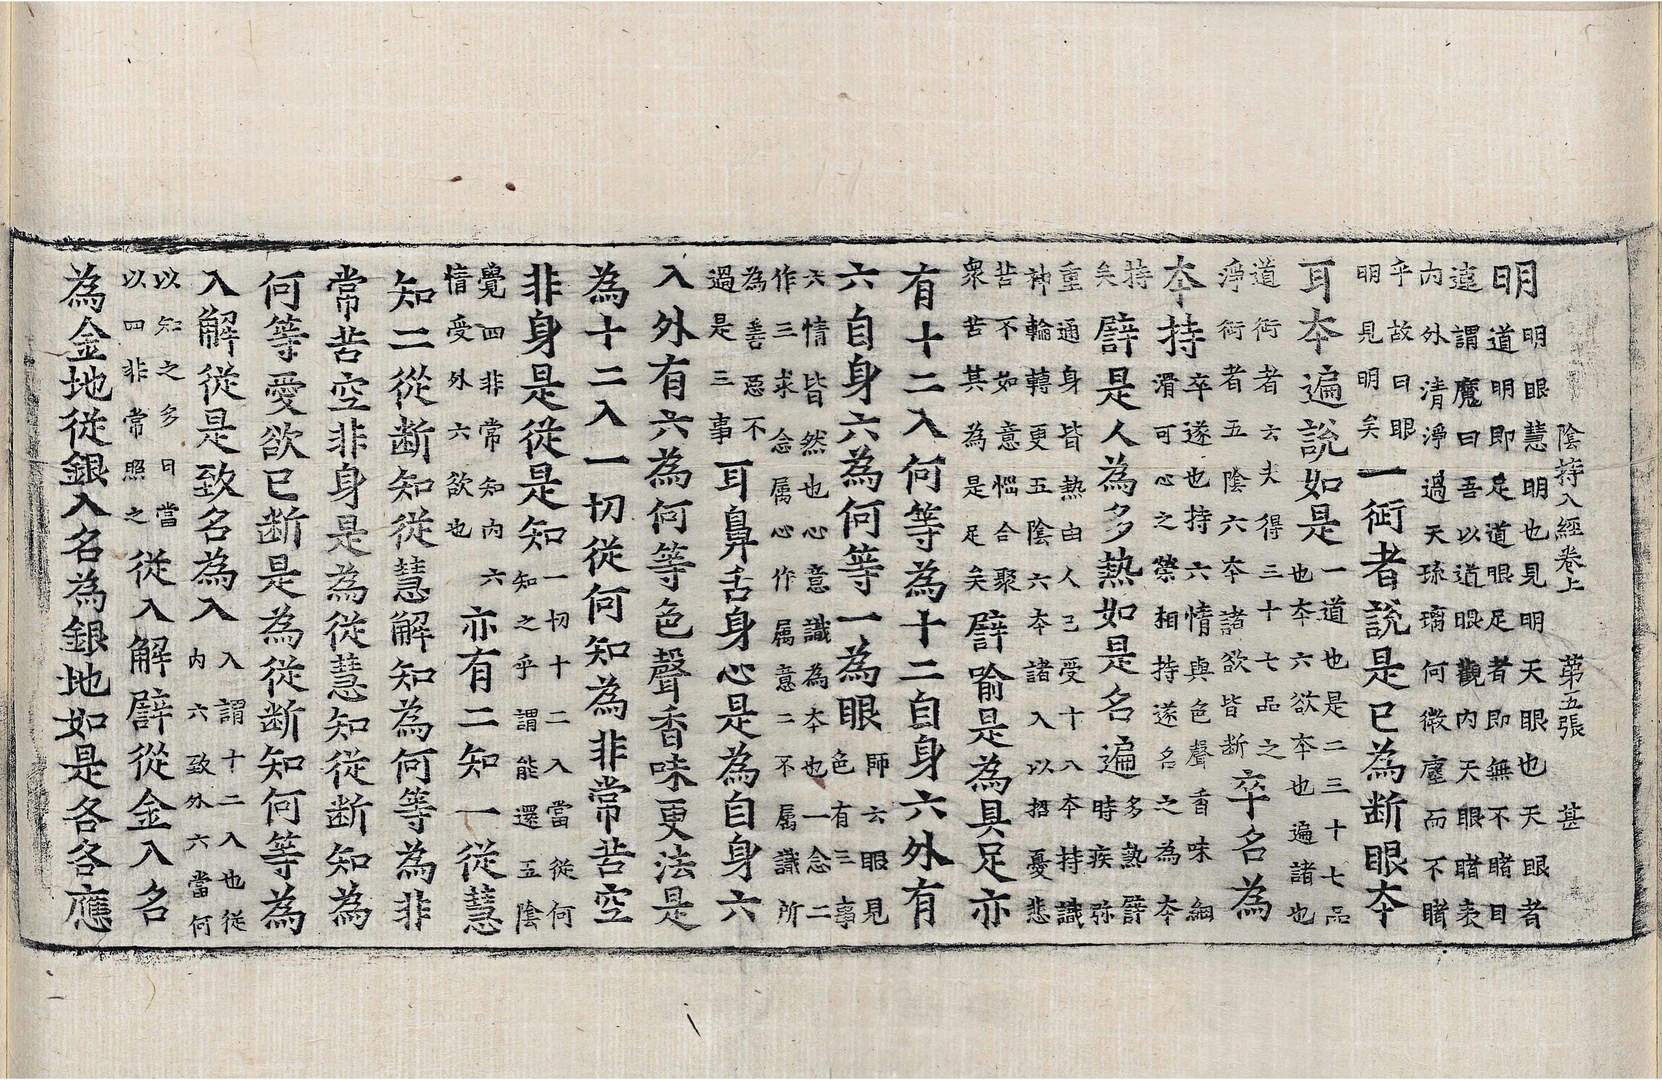 陰持入經卷上　第五張　甚
明
明眼慧明也見明天眼也天眼者
道明即是道眼足者即無不睹目
遠謂魔曰吾以道眼觀內天眼睹表
內外清淨過天琉璃何微塵而不睹
乎故曰眼
明見明矣
一術者說是已為断眼夲
耳夲遍說如是
一道也是二三十七品
也夲六欲夲也遍諸也
道術者云夫得三十七品之
淨術者五陰六夲諸欲皆断
卒名為
夲持
卒遂也持六情與色聲香味細
滑可心之榮相持遂名之為夲
持
矣
譬是人為多熱如是名遍
多熱譬
時疾稱
重通身皆熱由人已受十八夲持識
神輪轉更五陰六夲諸入以招憂悲
苦不如意惱合聚
眾苦其為是足矣
譬喻是為具足亦
有十二入何等為十二自身六外有
六自身六為何等一為眼
師云眼見
色有三事
六情皆然也心意識為夲也一念二
作三求念属心作属意二不属識所
為善惡不
過是三事
耳鼻舌身心是為自身六
入外有六為何等色聲香味更法是
為十二入一切從何知為非常苦空
非身是從是知
一切十二入當從何
知之乎謂能還五陰
覺四非常知內六
情受外六欲也
亦有二知一從慧
知二從断知從慧解知為何等為非
常苦空非身是為從慧知從断知為
何等愛欲已断是為從断知何等為
入解從是致名為入
入謂十二入也從
內六致外六當何
以知之多曰當
以四非常照之
從入解譬從金入名
為金地從銀入名為銀地如是各各應